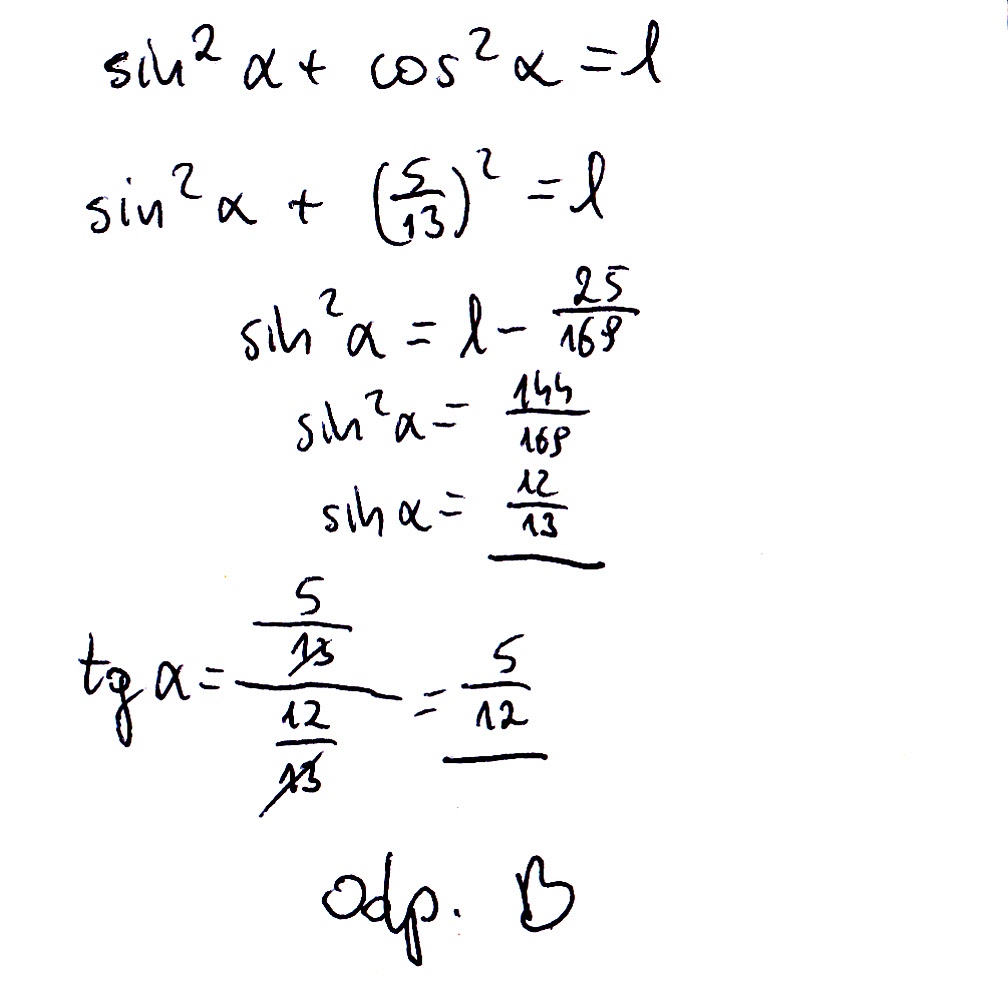 sin² α + cos² α = 1
sin² α + (5/13)² = 1
sin² α = 1 - 25/169
sin² α = 144/169
sin α = 12/13
tg α = (5/13)/(12/13) = 5/12
Odp. B